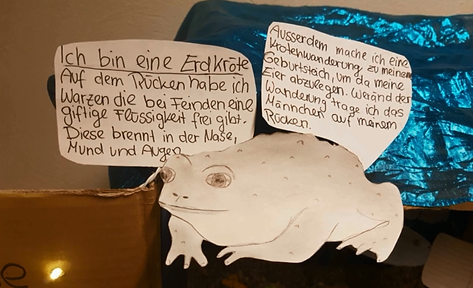 Ich bin eine Erdkröte
Auf dem Rücken habe ich
Warzen die bei Feinden eine
giftige Flüssigkeit frei gibt.
Diese brennt in der Nase,
Mund und Augen
Ausserdem mache ich eine
Krötenwanderung zu meinem
Geburtsteich, um da meine
Eier abzulegen. Weränd der
Wanderung trage ich das
Männchen auf meinem
Rücken.
e